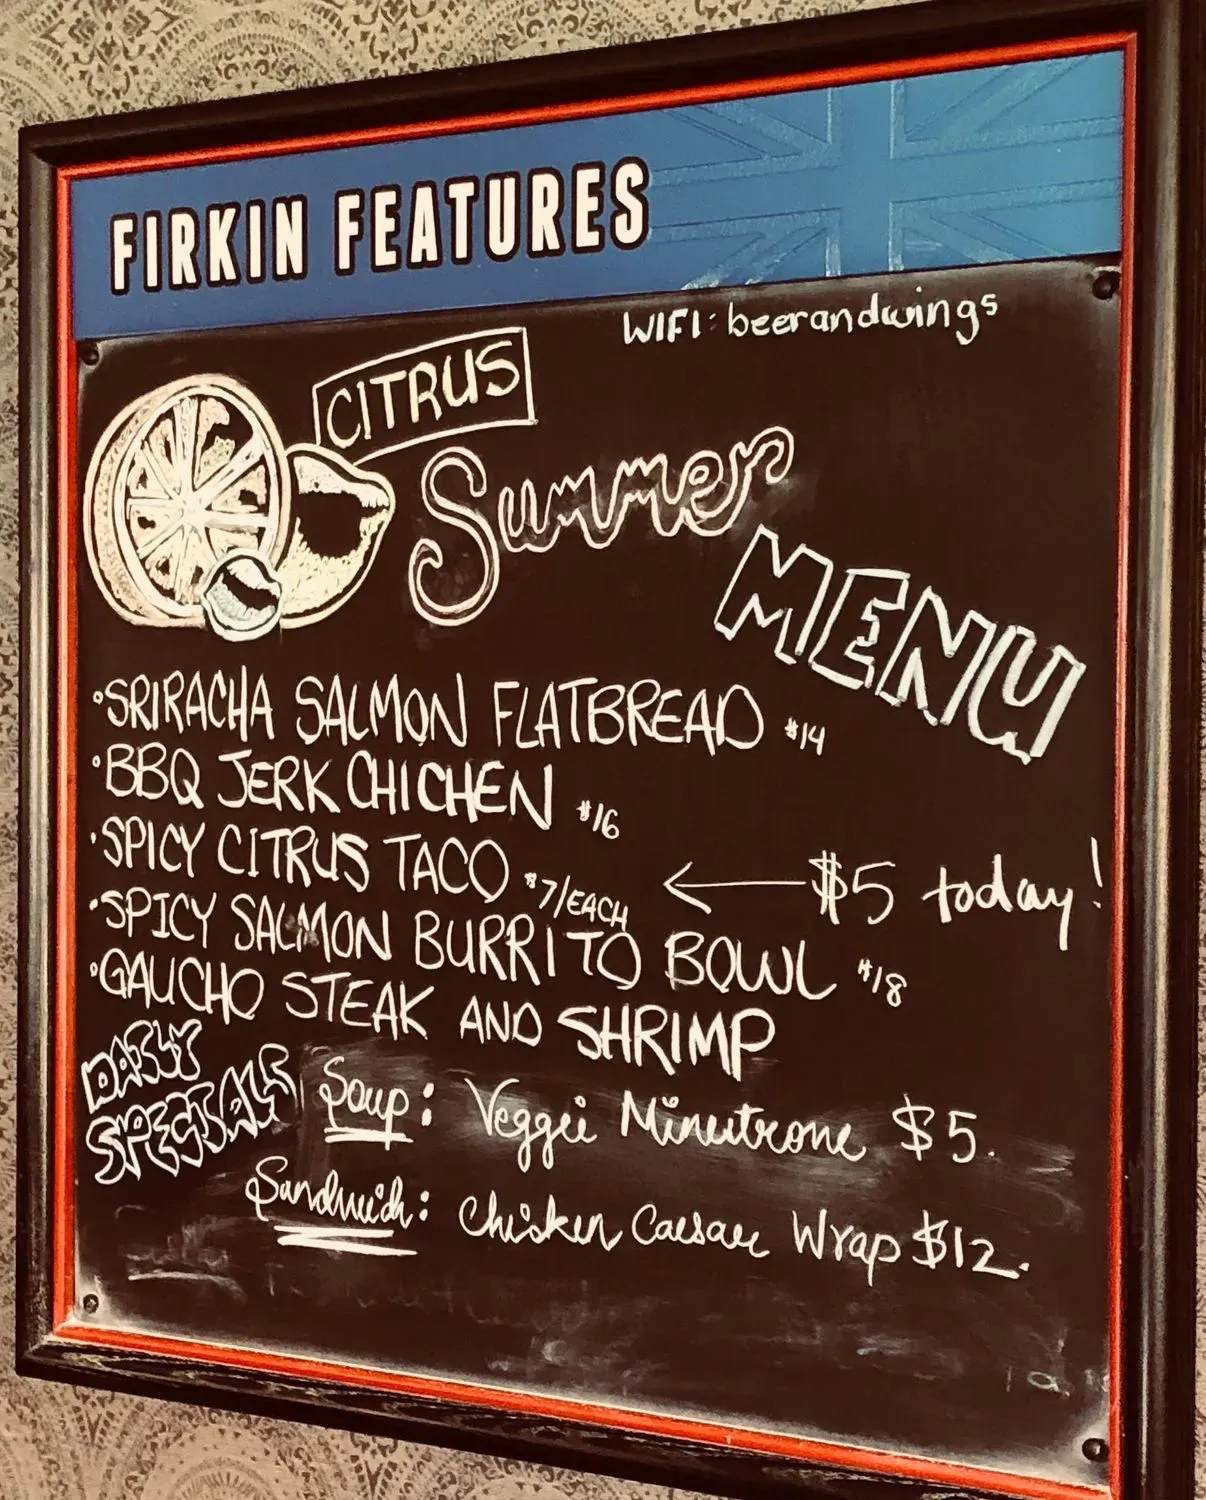 FIRKIN FEATURES
WIFI: beerandwings
CITRUS
Summer
MENU
•SRIRACHA SALMON FLATBREAD $14
•BBQ JERK CHICHEN $16
•SPICY CITRUS TACO $7/EACH ← $5 today!
•SPICY SALMON BURRITO BOWL $18
•GAUCHO STEAK AND SHRIMP
DAILY
SPECIALS
Soup: Veggii Minutrone $5.
Sandwich: Chicken Caesar Wrap $12.